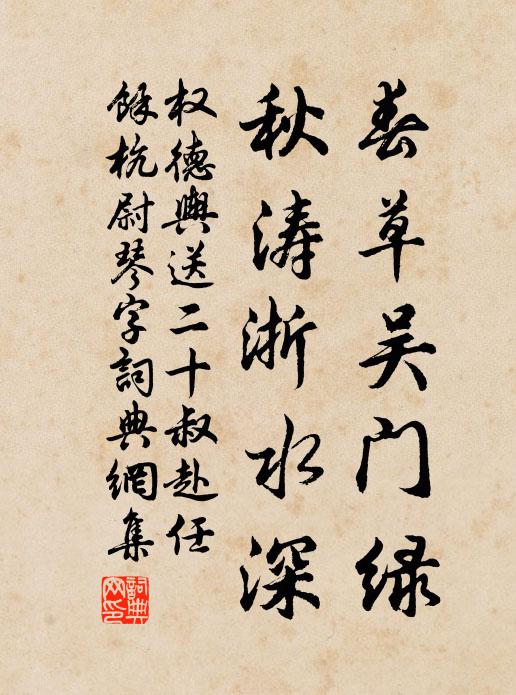 春草吴门绿
秋涛浙水深
权德舆送二十叔赴任
馀杭尉琴字詞典網集
詞典
网印